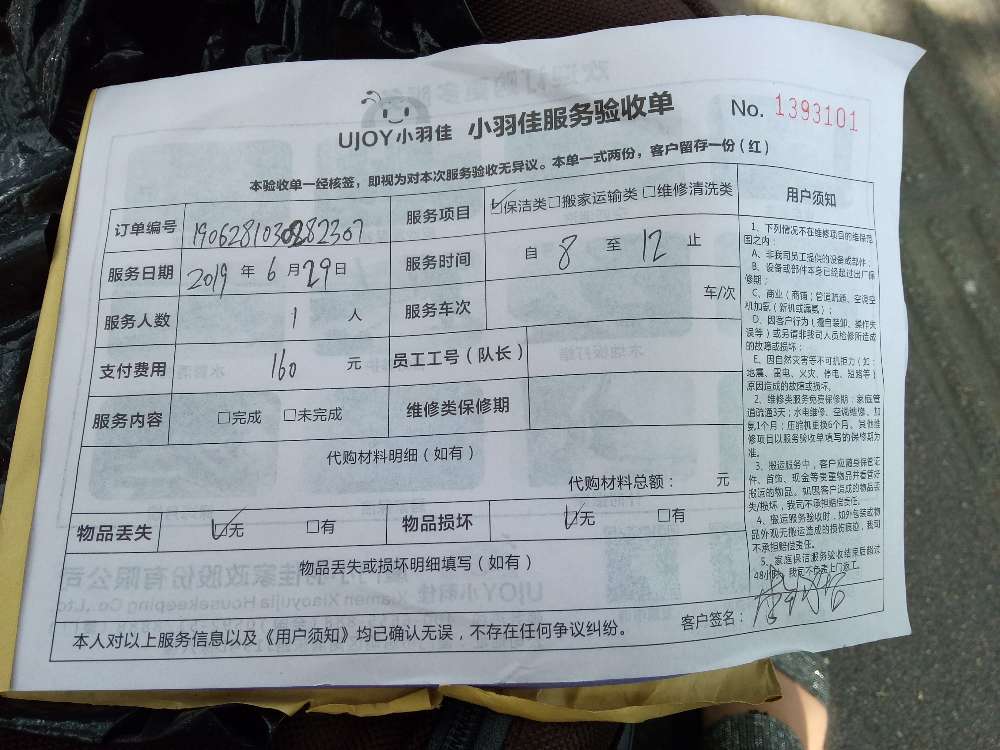 UJOY小羽佳 小羽佳服务验收单 No. 1393101
本验收单一经核签，即视为对本次服务验收无异议。本单一式两份，客户留存一份（红）
订单编号 1906281030282307 服务项目 ☑保洁类□搬家运输类□维修清洗类
服务日期 2019 年 6 月 29 日 服务时间 自 8 至 12 止
服务人数 1 人 服务车次 车/次
支付费用 160 元 员工工号（队长）
服务内容 □完成 □未完成 维修类保修期
代购材料明细（如有）
代购材料总额： 元
物品丢失 ☑无 □有 物品损坏 ☑无 □有
物品丢失或损坏明细填写（如有）
客户签名：
本人对以上服务信息以及《用户须知》均已确认无误，不存在任何争议纠纷。
用户须知
1、下列情况不在维修项目的维保范
围之内：
A、非我司员工提供的设备或部件；
B、设备或部件本身已经超过出厂保
修期；
C、商业（商铺）管道疏通、空调空
机加氨（新机或漏氨）；
D、因客户行为（擅自装卸、操作失
误等）或另请非我司人员检修所造成
的故障或损坏；
E、因自然灾害等不可抗拒力（如：
地震、雷电、火灾、停电、短路等）
原因造成的故障或损坏。
2、维修类服务免费保修期：家庭管
道疏通3天；水电维修、空调维修、加
氨1个月；压缩机更换6个月。其他维
修项目以服务验收单填写的保修期为
准。
3、搬运服务中，客户应随身保管证
件、首饰、现金等贵重物品并看管好
搬运的物品。如因客户造成的物品丢
失/损坏，我司不承担赔偿责任。
4、搬运服务验收时，如外包装或物
品外观无搬运造成的损伤痕迹，我司
不承担赔偿责任。
5、家庭保洁服务验收结束后超过
48小时，我司不负责上门返工。